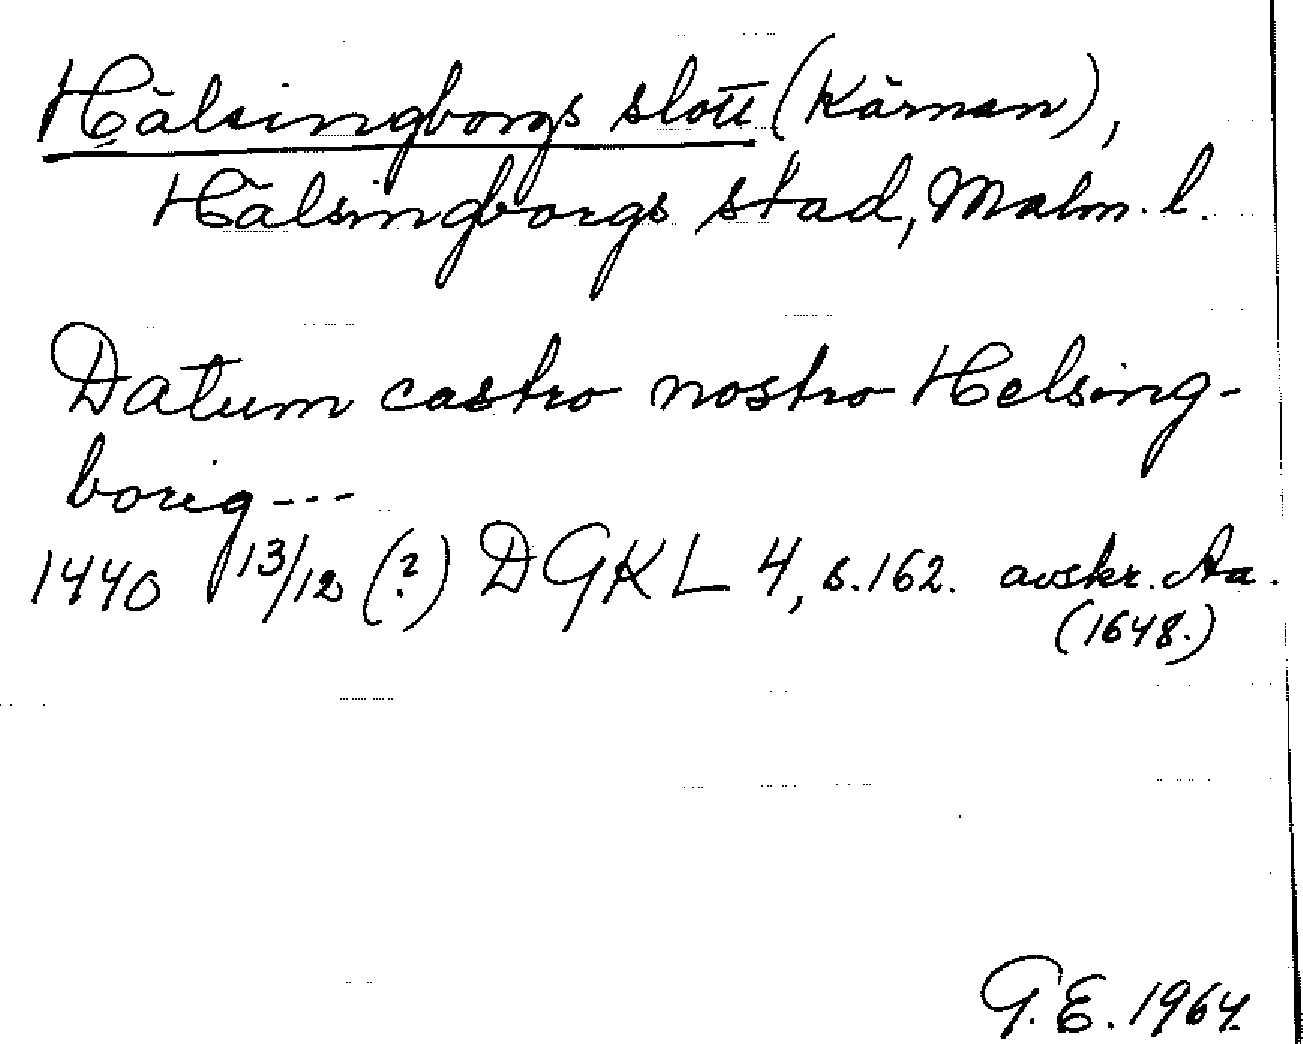 Hälsingborgs slott (Kärnan),
Hälsingborgs stad, Malm. l.
Datum castro nostro Helsing-
borig---
1440 13/12 (?) DGKL 4, s.162. avskr. Aa.
(1648.)
G.E. 1964.